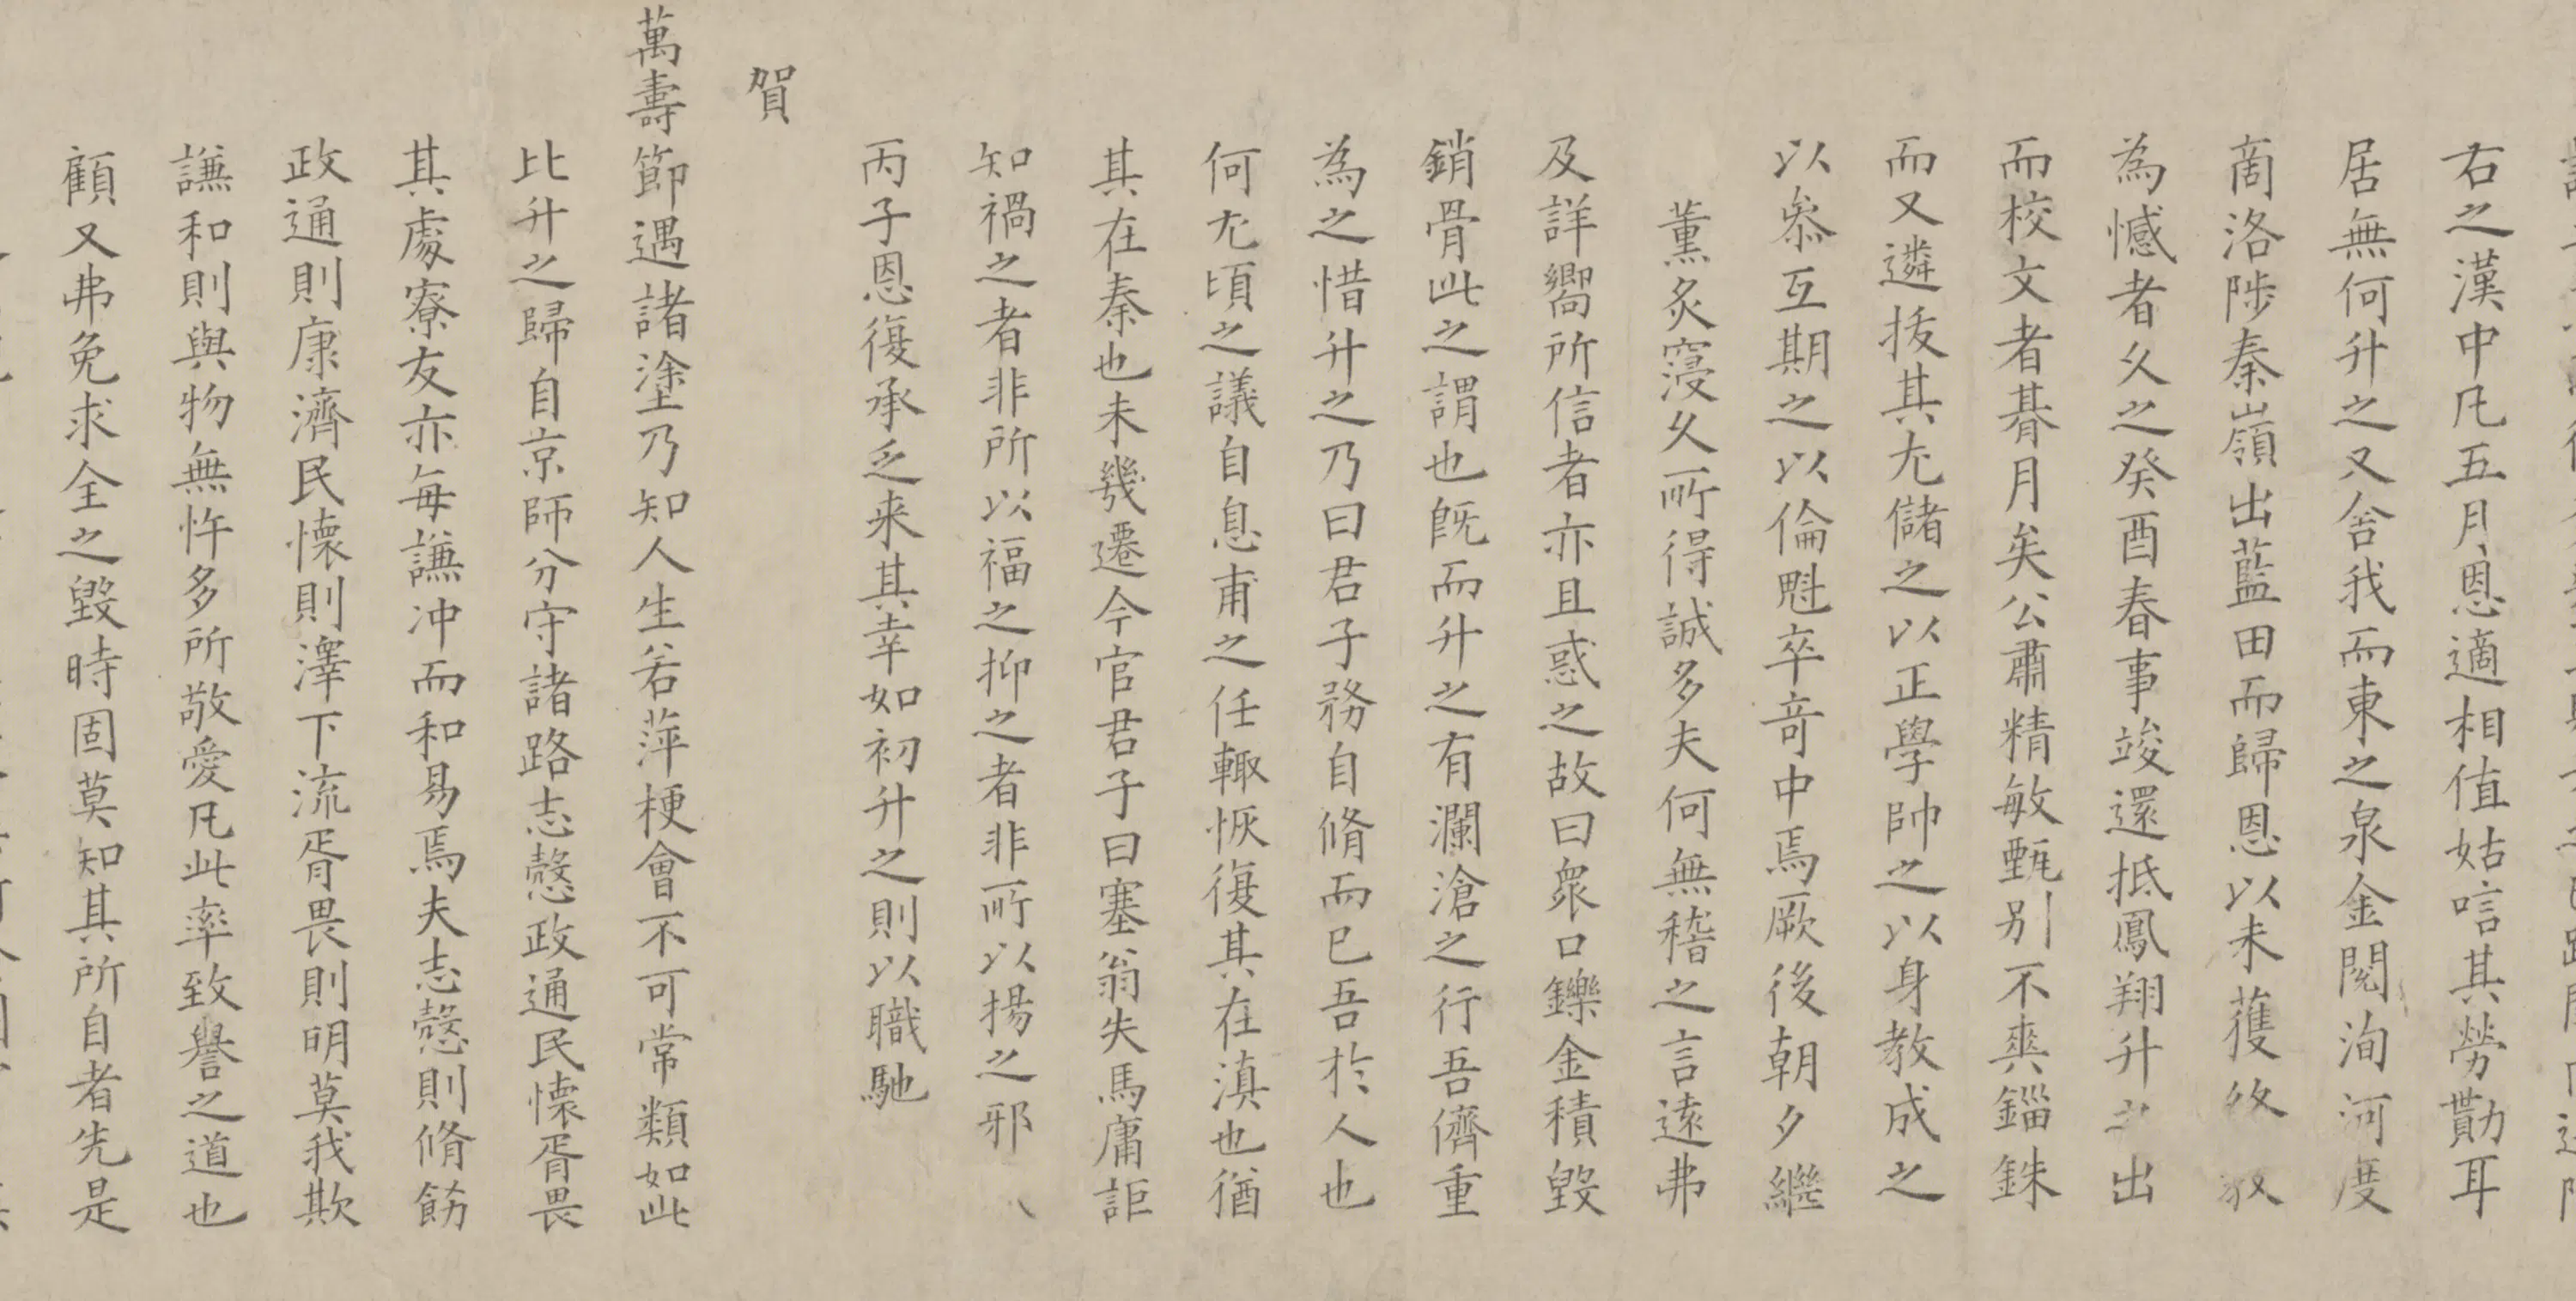 右之漢中凡五月恩適相值姑唁其勞勩耳
居無何升之又舍我而東之泉金閱洵河度
商洛陟秦嶺出藍田而歸恩以未獲攸敘
為憾者久之癸酉春事竣還抵鳳翔升之出
而校文者朞月矣公肅精敏甄别不爽錙銖
而又遴拔其尤儲之以正學帥之以身教成之
以叅互期之以倫魁卒竒中焉厥後朝夕繼
薰炙寖久所得誠多夫何無稽之言遠弗
及詳嚮所信者亦且惑之故曰衆口鑠金積毀
銷骨此之謂也旣而升之有瀾滄之行吾儕重
為之惜升之乃曰君子務自脩而已吾於人也
何尤頃之議自息甫之任輙恢復其在滇也猶
其在秦也未幾遷今官君子曰塞翁失馬庸詎
知禍之者非所以福之抑之者非所以揚之邪
丙子恩復承乏来其幸如初升之則以職馳
賀
萬壽節遇諸塗乃知人生若萍梗會不可常類如此
比升之歸自京師分守諸路志愨政通民懷胥畏
其處寮友亦每謙冲而和易焉夫志愨則脩飭
政通則康濟民懷則澤下流胥畏則明莫我欺
謙和則與物無忤多所敬愛凡此率致譽之道也
顧又弗免求全之毀時固莫知其所自者先是